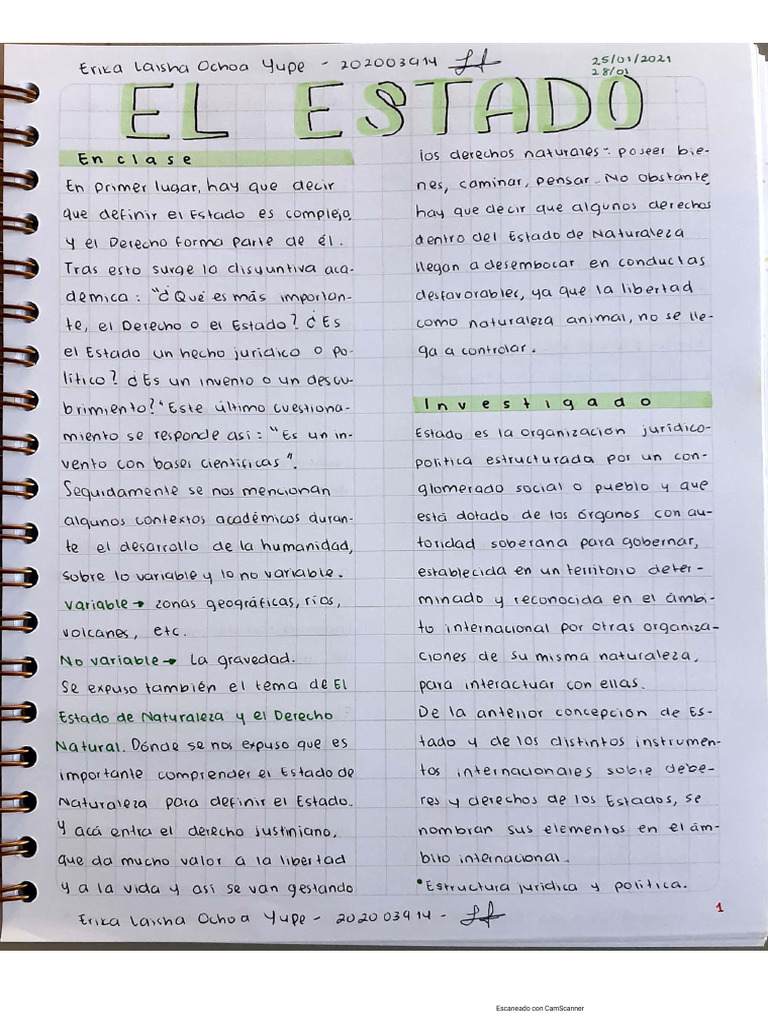 Erika Laisha Ochoa Yupe - 202003914
25/01/2021
28/01
EL ESTADO
En clase
En primer lugar, hay que decir
que definir el Estado es complejo,
y el Derecho forma parte de él.
Tras esto surge la disyuntiva aca-
démica: "¿Qué es más importan-
te, el Derecho o el Estado? ¿Es
el Estado un hecho jurídico o po-
lítico? ¿Es un invento o un descu-
brimiento?" Este último cuestiona-
miento se responde así: "Es un in-
vento con bases científicas".
Seguidamente se nos mencionan
algunos contextos académicos duran-
te el desarrollo de la humanidad,
sobre lo variable y lo no variable.
Variable → zonas geográficas, ríos,
volcanes, etc.
No variable → La gravedad.
Se expuso también el tema de El
Estado de Naturaleza y el Derecho
Natural. Dónde se nos expuso que es
importante comprender el Estado de
Naturaleza para definir el Estado.
Y acá entra el derecho justiniano,
que da mucho valor a la libertad
y a la vida y así se van gestando
los derechos naturales: poseer bie-
nes, caminar, pensar.. No obstante,
hay que decir que algunos derechos
dentro del Estado de Naturaleza
llegan a desembocar en conductas
desfavorables, ya que la libertad
como naturaleza animal, no se lle-
ga a controlar.
Investigado
Estado es la organización jurídico-
política estructurada por un con-
glomerado social o pueblo y que
está dotado de los órganos con au-
toridad soberana para gobernar,
establecida en un territorio deter-
minado y reconocida en el ámbi-
to internacional por otras organiza-
ciones de su misma naturaleza,
para interactuar con ellas.
De la anterior concepción de Es-
tado y de los distintos instrumen-
tos internacionales sobre debe-
res y derechos de los Estados, se
nombran sus elementos en el ám-
bito internacional.
• Estructura jurídica y política.
1
Erika Laisha Ochoa Yupe - 202003914 -
Escaneado con CamScanner